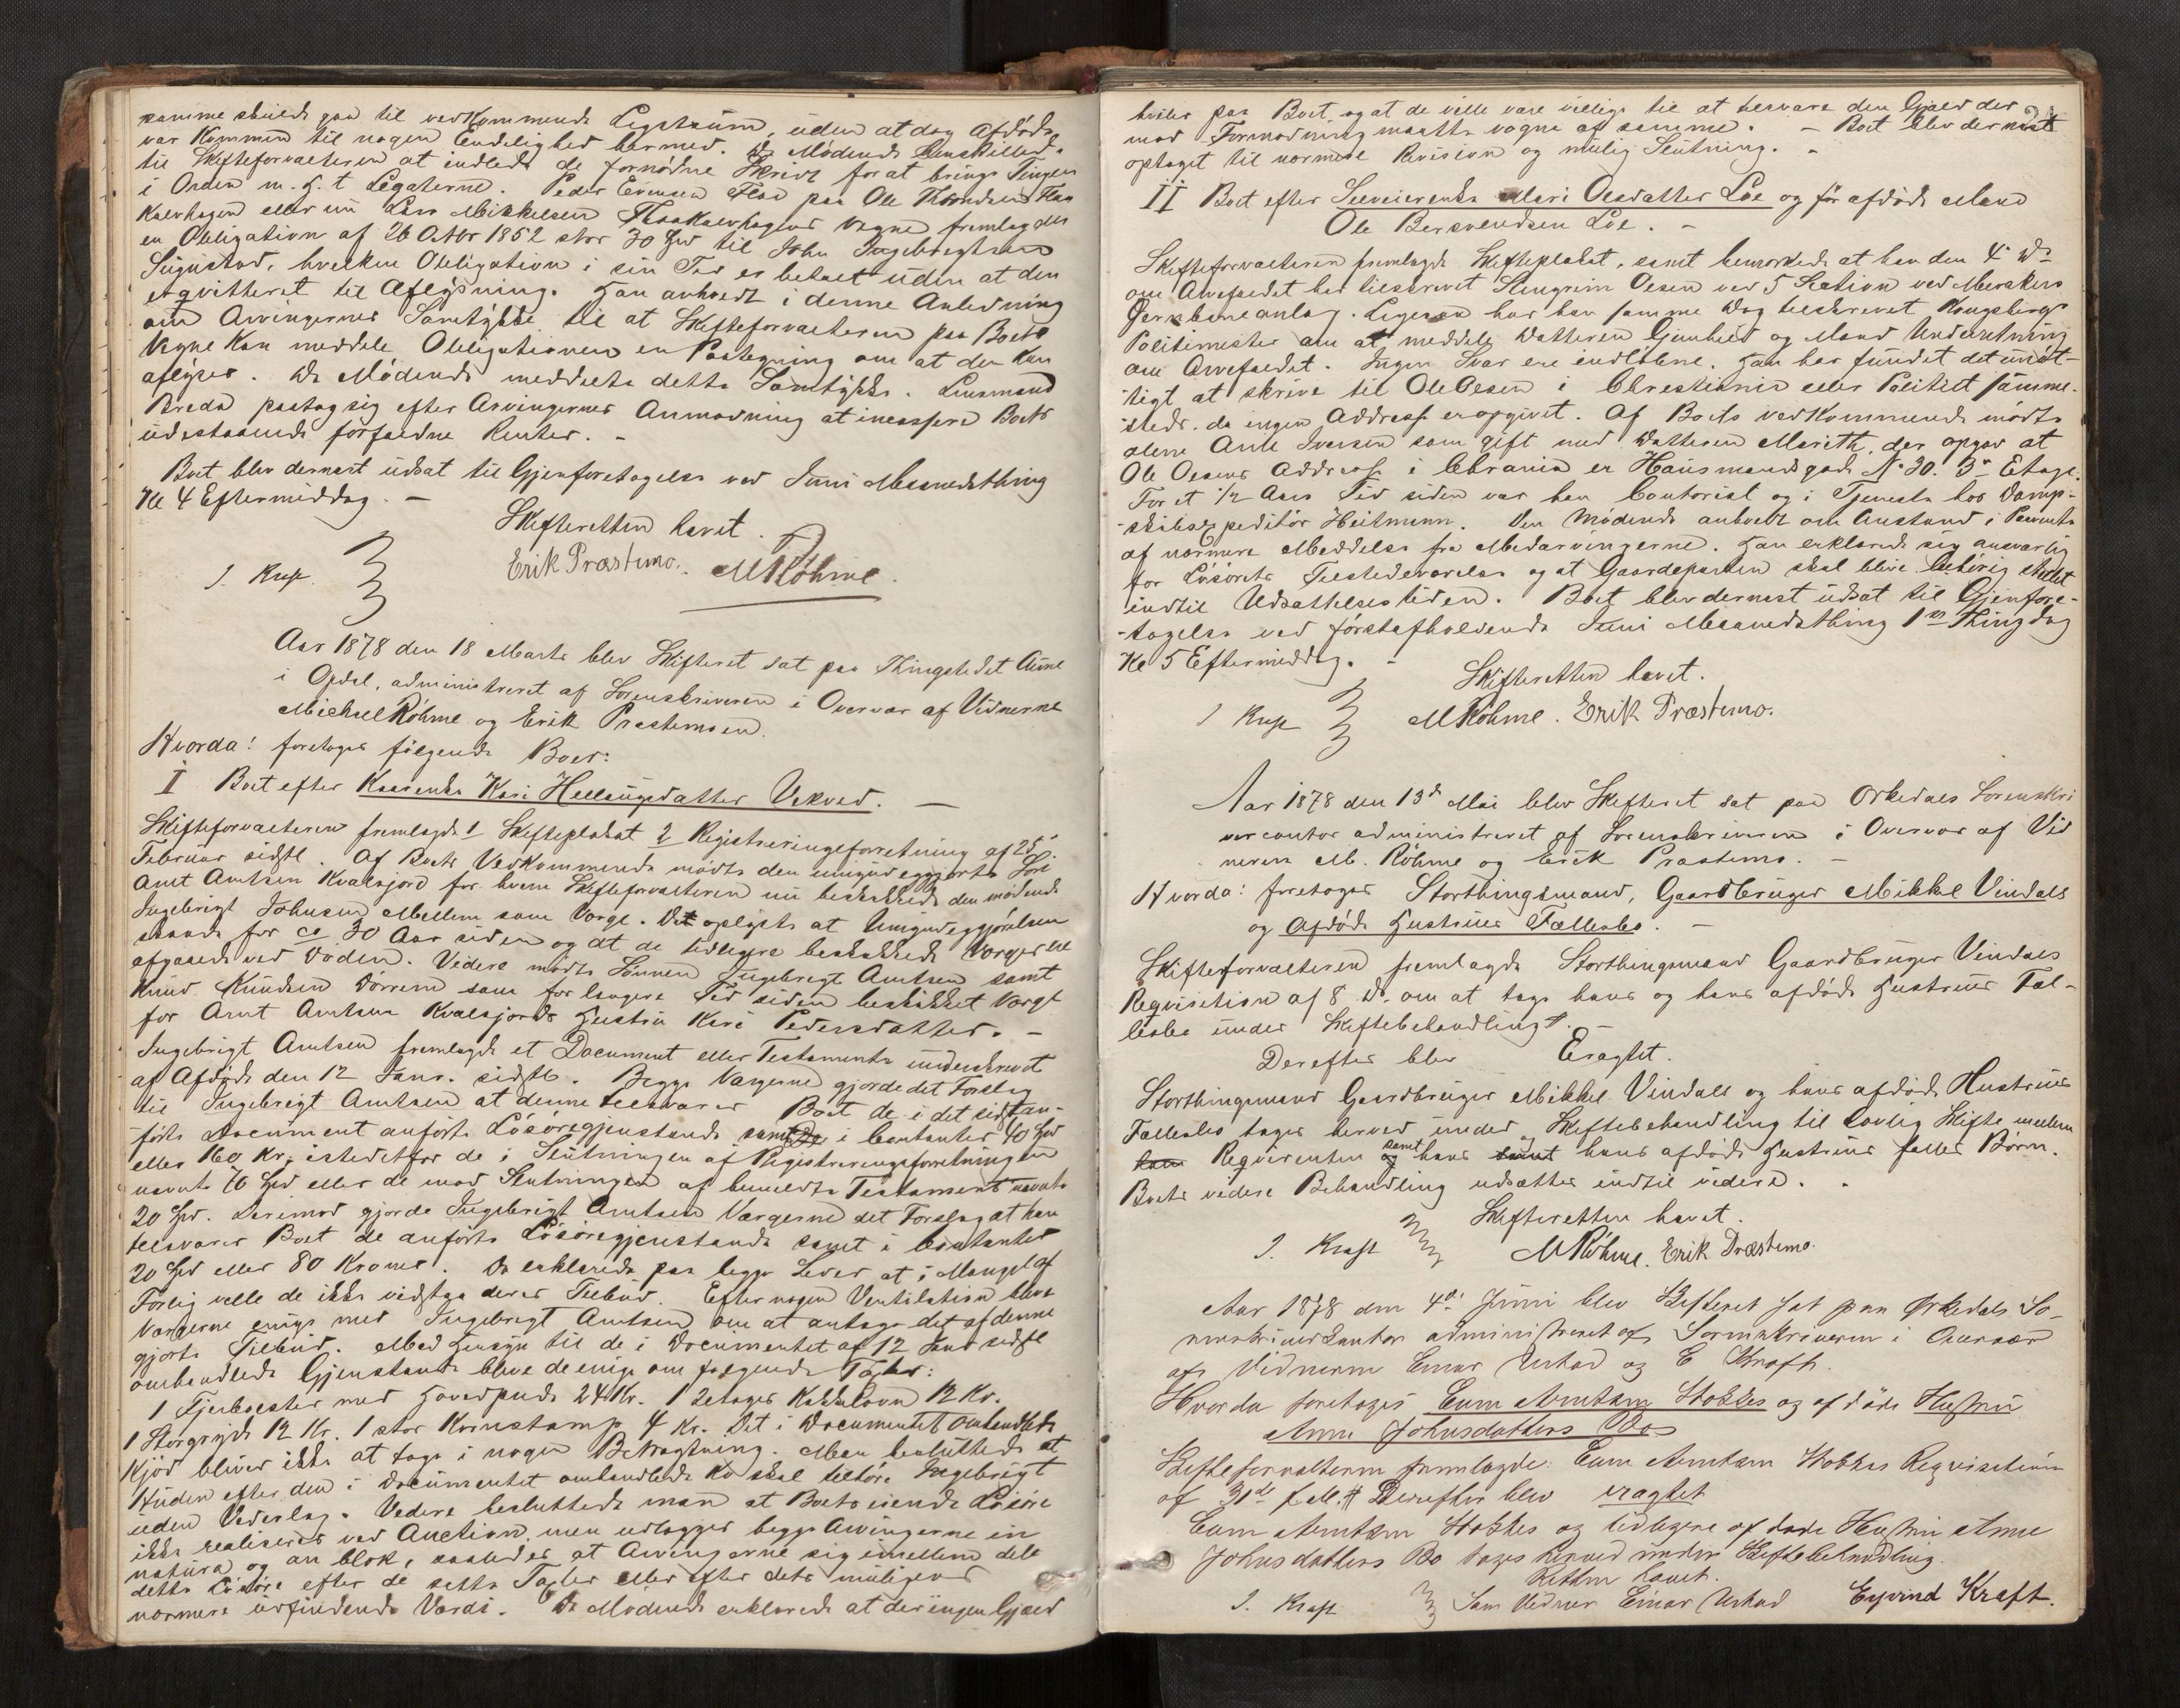 samme skulde gaa til vedkommende Legatum, uden at dog Afdøde
var kommen til nogen Endelighed hermed. De Mødende henstillede
til Skifteforvalteren at indlede de fornødne Skridt for at bringe Tingen
i Orden m. H. t Legaterne. Peder Evensen Floa paa Ole Thomdsens Floa
kalvhagen eller nu Lars Mikkelsen Floakalvhagens Vegne fremlagde
en Obligation af 26 Octbr 1852 stor 30 Spd til John Ingebrigtsen
Sugustad, hvilken Obligation i sin Tid er betalt uden at den
er qvitteret til Aflysning. Han anholdt i denne Anledning
om Arvingernes Samtykke til at Skifteforvalteren paa Boets
Vegne kan meddele Obligationen en Paategning om at den kan
aflyses. De Mødende meddeelte dette Samtykke. Lensmand
Breda paatog sig efter Arvingernes Anmodning at incassere Boets
udestaaende forfaldne Renter. -
Boet blev dernæst udsat til Gjenforetagelse ved Juni Maanedsthing
Kl 4 Eftermiddag. -
Skifteretten hævet.
J. Kraft. Erik Præstmo. M Röhme.
Aar 1878 den 18 Marts blev Skifteret sat paa Thingstedet Aune
i Opdal, administreret af Sorenskriveren i Overvær af Vidnerne
Michael Röhme og Erik Præstemoen.
Hvorda: foretoges følgende Boer:
I Boet efter Kaarenke Kari Hellaugsdatter Vekved. -
Skifteforvalteren fremlagde 1 Skifteplakat 2 Registreringsforretning af 25
Februar sidstl. Af Boets Vedkommende mødte den umyndiggjorte Søn
Arnt Arntsen Kvalsjord for hvem Skifteforvalteren nu beskikkede den mødende
Ingebrigt Johnsen Mellem som Værge. Det oplystes at Umyndiggjørelsen
skeede for ca 30 Aar siden og at de tidligere beskikkede Værger ere
afgaaede ved Døden. Videre mødte Sønnen Ingebrigt Arntsen samt
Knud Knudsen Dørrem som for længere Tid siden beskikket Værge
for Arnt Arntsen Kvalsjords Hustru Kari Pedersdatter. -
Ingebrigt Arntsen fremlagde et Document eller Testamente underskrevet
af Afdøde den 12 Janr. sidstl. Begge Værgerne gjorde det Forslag
til Ingebrigt Arntsen at denne tilsvarer Boet de i det sidstan-
førte Document anførte Løsøregjenstande samt i Contanter 40 Spd
eller 160 Kr. istedetfor de i Slutningen af Registreringsforretningen
nævnte 70 Spd eller de mod Slutningen af bemeldte Testament nævnte
20 Spd. Derimod gjorde Ingebrigt Arntsen Værgerne det Forslag at han
tilsvarer Boet de anførte Løsøregjenstande samt i Contanter
20 Spd eller 80 Kroner. De erklærede paa begge Sider at i Mangel af
Forlig ville de ikke vedstaa deres Tilbud. Efter nogen Ventilation blev
Værgerne enige med Ingebrigt Arntsen om at antage det af denne
gjorte Tilbud. Med Hensyn til de i Documentet af 12 Janr sidstl
omhandlede Gjenstande bleve de enige om følgende Taxter:
1 Fjerbolster med Hovedpude 24 Kr. 1 2etages Kakkelovn 12 Kr.
1 Storgryde 12 Kr. 1 stor Kornstamp 4 Kr. Det i Documentet omhandlede
Kjød bliver ikke at tage i nogen Betragtning. Man besluttede at
Huden efter den i Documentet omhandlede Ko skal tilhøre Ingebrigt
uden Vederlag. Videre besluttede man at Boets øvende Løsøre
ikke realiseres ved Auction, men udlægges begge Arvingerne in
natura og en blok, saaledes at Arvingerne sig imellem dele
dette Løsøre efter de satte Taxter eller efter dets muligens
nærmere udfindende Værdi. De Mødende erklærede at der ingen Gjæld
hviler paa Boet, og at de ville være villige til at besvare den Gjæld der
mod Formodning maatte vogne af samme. - Boet blev dernæst
optaget til nærmere Revision og mulig Slutning. -
II Boet efter Selveierenke Mari Olsdatter Loe og før afdøde Mand
Ole Bersvendsen Loe. -
Skifteforvalteren fremlagde Skifteplakat, samt bemærkede at han den 4de ds
om Arvefaldet har tilskrevet Stengrim Olsen ved 5 Section ved Meraker
Jernbaneanlæg. Ligesom har han samme Dag tilskrevet Kongsbergs
Politimester om at meddele Datteren Gunhild og Mand Underretning
om Arvefaldet. Ingen Svar ere indløbne. Han har fundet det unøt-
tigt at skrive til Ole Olsen i Christiania eller Politiet samme-
steds. da ingen Addresse er opgivet. Af Boets vedkommende mødte
alene Ante Iversen som gift med Datteren Marith, der opgav at
Ole Olsens Addresse i Chrania er Hausmandsgade No 30. 3die Etage.
For et 1/2 Aars Tid siden var han Contorist og i Tjeneste hos Damp-
skibsexpeditør Heitmann. Den Mødende anholdt om Anstand i Paavente
af nærmere Meddelse fra Medarvingerne. Han erklærede sig ansvarlig
for Løsørets Tilstedeværelse og at Gaardeparten skal blive behørig stellet
indtil Udsættelsestiden. Boet blev dernæst udsat til Gjenfore-
tagelse ved førstafholdende Juni Maanedsthing 1ste Thingdag
Kl 5 Eftermiddag. -
Skifteretten hævet.
J Kraft M Röhme. Erik Præstmo.
Aar 1878 den 13de Mai blev Skifteret sat paa Orkedals Sorenskri
vercontor administreret af Sorenskriveren i Overvær af Vid
nerne M. Röhme og Erik Præstemo. -
Hvorda: foretoges Storthingsmand, Gaardbruger Mikkel Vindals
og Afdøde Hustrues Fællesbo. -
Skifteforvalteren fremlagde Storthingsmand Gaardbruger Vindals
Reqvisition af 8 ds. om at tage hans og hans afdøde Hustrues Fæl-
lesbo under Skiftebehandling. -
Derefter blev Eragtet.
Storthingsmand Gaardbruger Mikkel Vindals og hans afdøde Hustrues
Fællesbo tages herved under Skiftebehandling til lovlig Skifte mellem
Reqvirenten samt hans og hans afdøde Hustrues fælles Børn.
Boets videre Behandling udsættes indtil videre. .
Skifteretten hævet.
J. Kraft M Röhme. Erik Præstemo.
Aar 1878 den 4de Juni blev Skifteret sat paa Ørkedals So-
renskriverkontor administreret af Sorenskriveren i Overvær
af Vidnerne Einar Urstad og E Kraft.
Hvorda foretoges Even Arntsen Stokkes og afdøde Hustru
Anne Johnsdatters Bo
Skifteforvalteren fremlagde: Even Arntsen Stokkes Reqvisition
af 31te f. M. Derefter blev eragtet
Even Arntsen Stokkes og tidligere afdøde Hustru Anne
Johnsdatters Bo tages herved under Skiftebehandling.
Retten hævet.
J. Kraft Som Vidner Einar Urstad Eyvind Kraft.